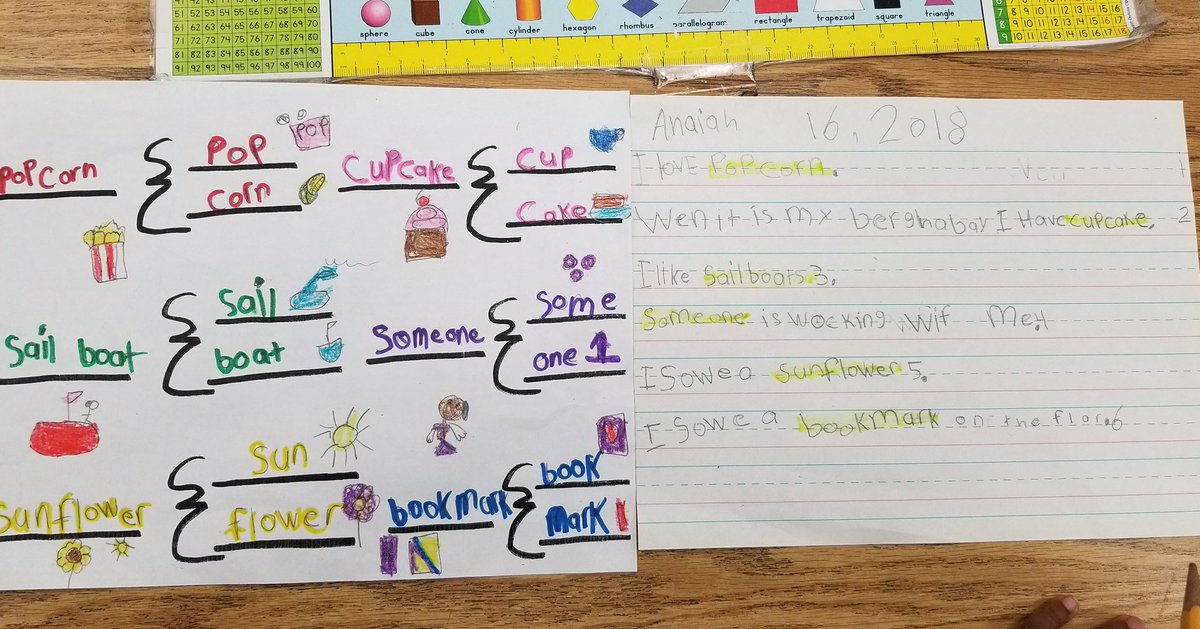 51 52 53 54 55 56 57 58 59 60
61 62 63 64 65 66 67 68 69 70
71 72 73 74 75 76 77 78 79 80
81 82 83 84 85 86 87 88 89 90
91 92 93 94 95 96 97 98 99 100
sphere cube cone cylinder hexagon rhombus parallelogram rectangle trapezoid square triangle
9 10 11 12 13 14 15 16 17 18
PoPcorn
PoP
POP
corn
CuPcake
cup
Cake
Sail boat
Sail
boat
Someone
Some
one 1
Sunflower
Sun
flower
bookmark
book
mark
Anaiah 16, 2018
I love PoPcorn. 1
Wen it is my berghabay I Have cupcake. 2
I like Sailboats.3.
Someone is wocking wif Me.4
I Sowe a sunflower 5.
I Sowe a bookmark on the flor.6